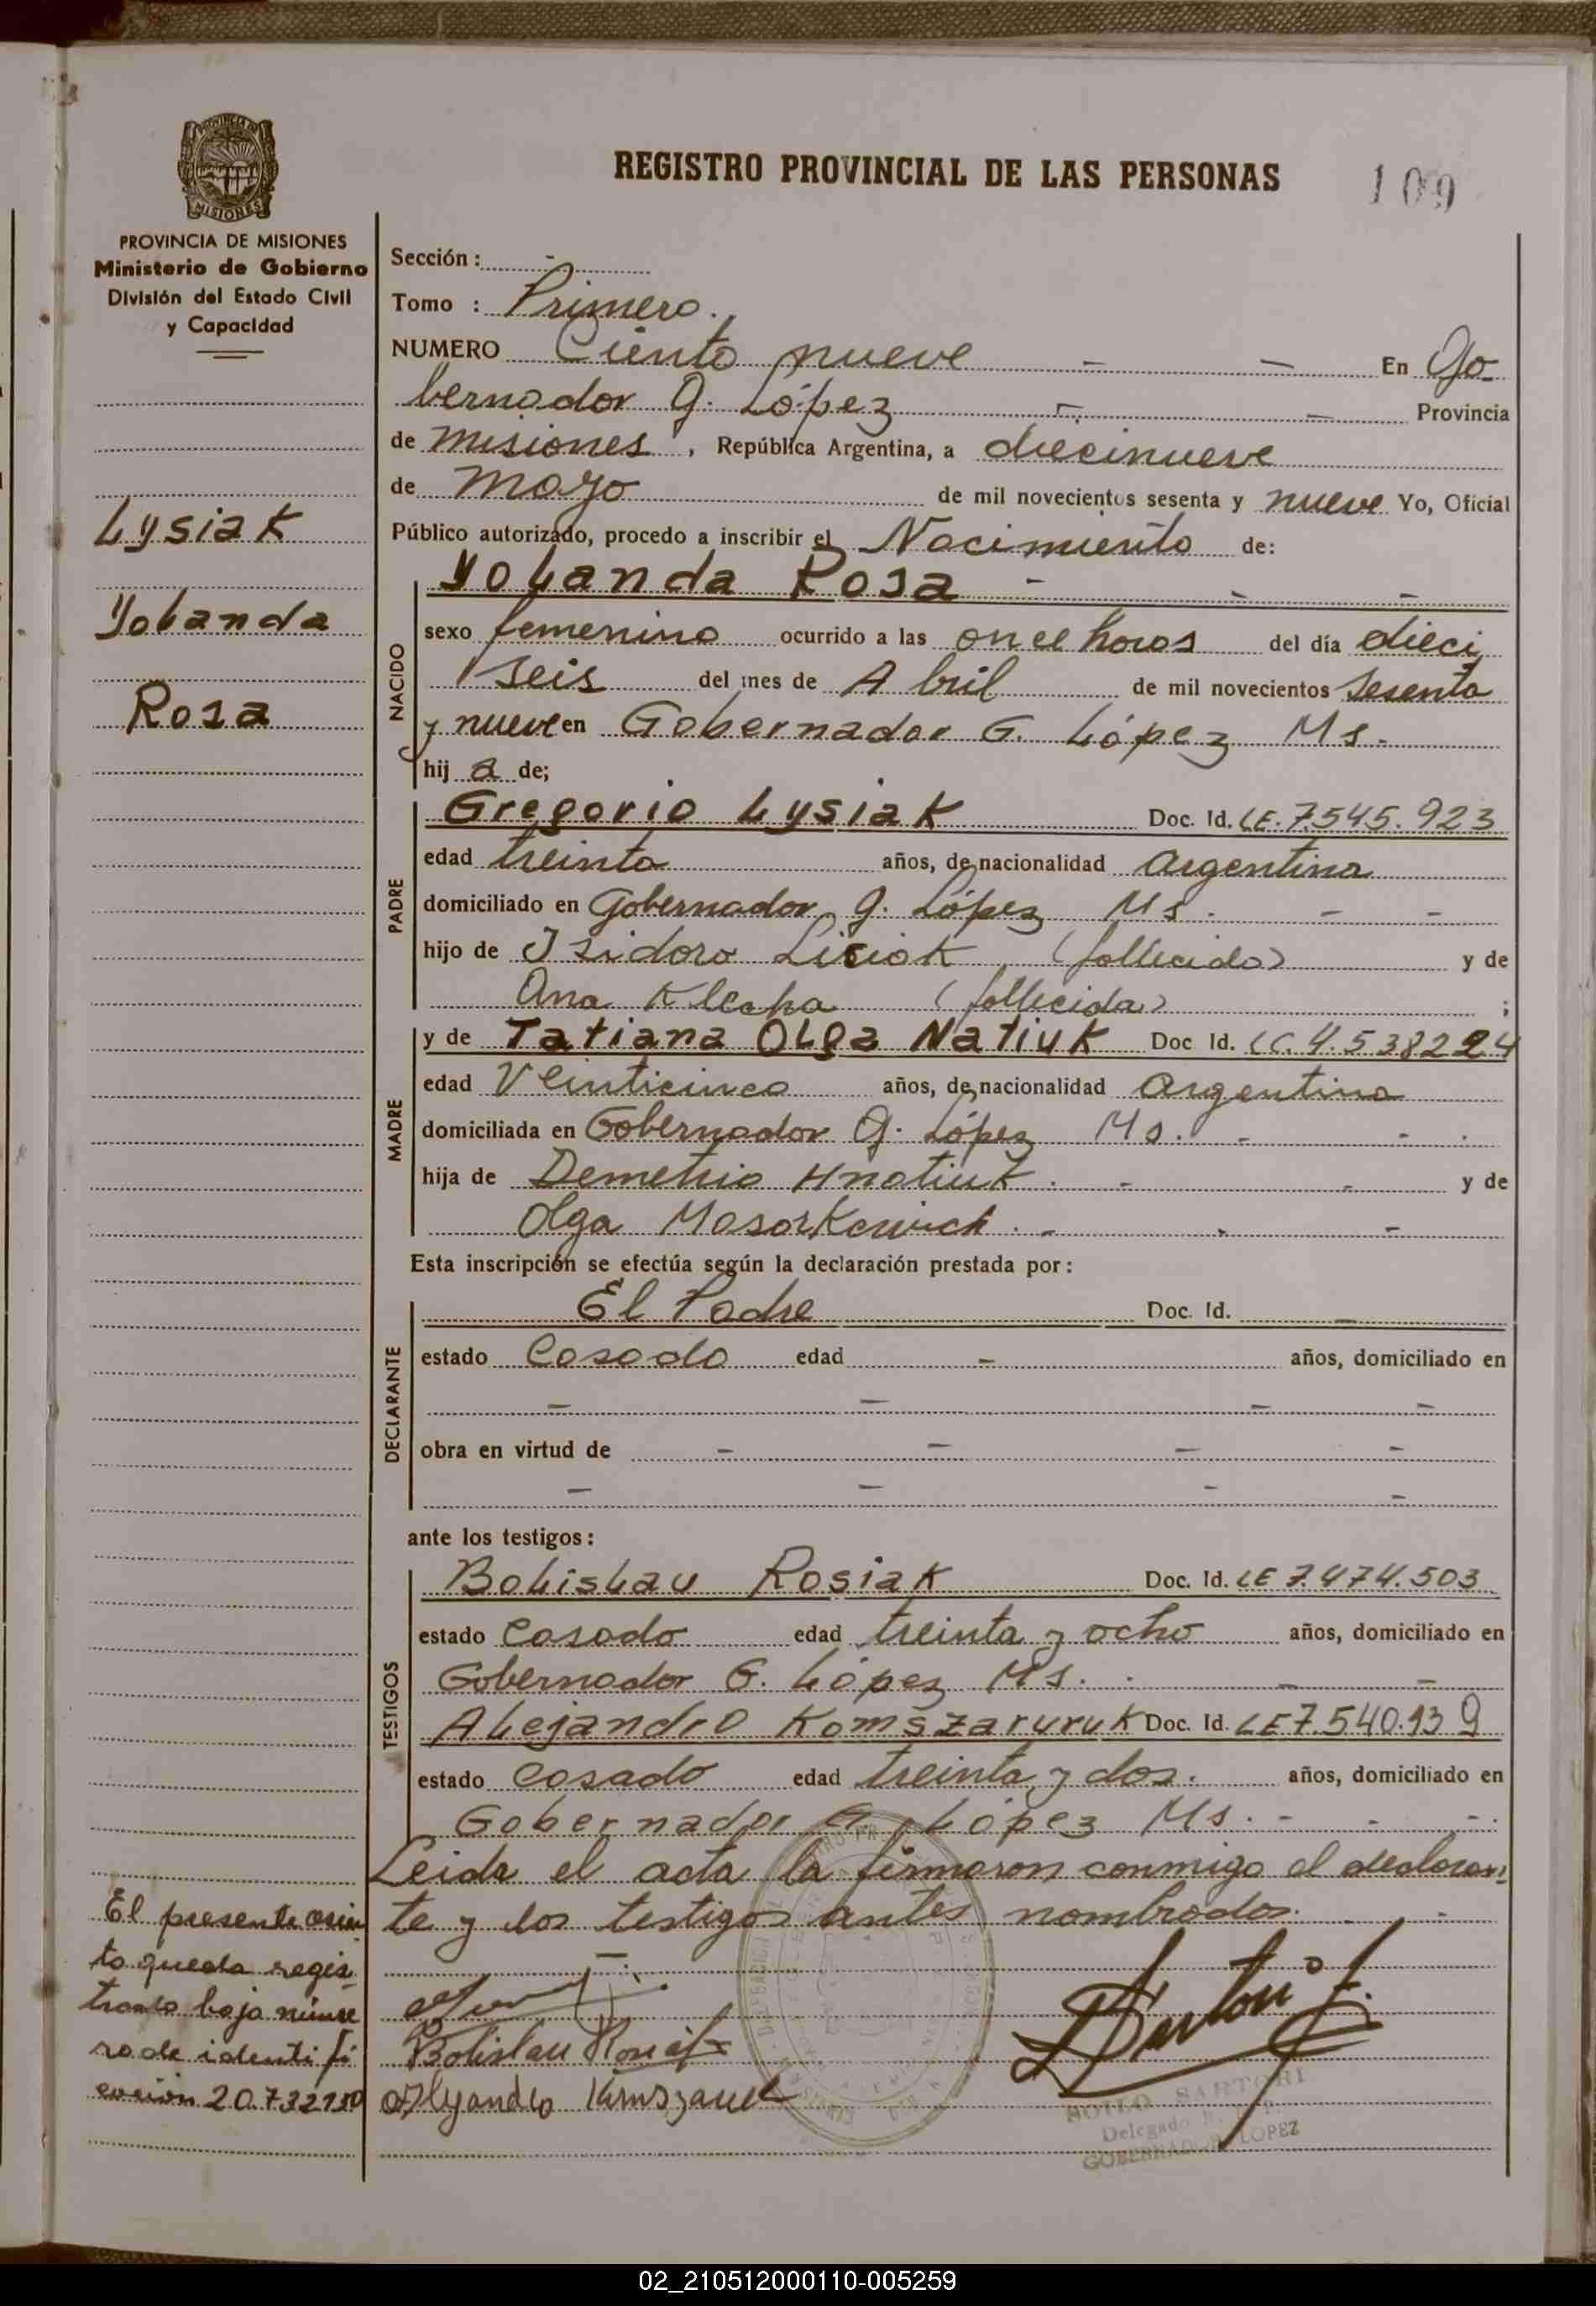 REGISTRO PROVINCIAL DE LAS PERSONAS 109
PROVINCIA DE
MISIONES
PROVINCIA DE MISIONES
Ministerio de Gobierno
División del Estado Civil
y Capacidad
Lysiak
Yolanda
Rosa
Sección : -
Tomo : Primero.
NUMERO Ciento nueve - - En Go-
bernador G. López - - Provincia
de Misiones, República Argentina, a diecinueve
de Mayo de mil novecientos sesenta y nueve Yo, Oficial
Público autorizado, procedo a inscribir el Nacimiento de:
NACIDO
Yolanda Rosa - - -
sexo femenino ocurrido a las once horas del día dieci
seis del mes de Abril de mil novecientos sesenta
y nueve en Gobernador G. López Ms.
hij a de;
PADRE
Gregorio Lysiak Doc. Id. LE. 7.545.923
edad treinta años, de nacionalidad argentina
domiciliado en Gobernador G. López Ms. - -
hijo de Isidoro Lisiak (fallecido) y de
Ana Klecha (fallecida) ;
MADRE
y de Tatiana Olga Natiuk Doc Id. LC. 4.538224
edad Veinticinco años, de nacionalidad argentina
domiciliada en Gobernador G. López Ms. - - .
hija de Demetrio Hnatiuk . - - y de
Olga Mosorkewich . - - -
Esta inscripción se efectúa según la declaración prestada por :
DECLARANTE
El Padre Doc. Id. -
estado Casado edad - años, domiciliado en
- - - -
obra en virtud de - - - -
- - - -
ante los testigos :
TESTIGOS
Bolislau Rosiak Doc. Id. LE 7.474.503
estado Casado edad treinta y ocho años, domiciliado en
Gobernador G. López Ms. - -
Alejandro Komszaruruk Doc. Id. LE 7.540.939
estado casado edad treinta y dos. años, domiciliado en
Gobernador G. López Ms. - - -
Leida el acta la firmaron conmigo el declaran-
te y los testigos antes nombrados.
El presente asien
to queda regis-
trado bajo núme
ro de identifi
cación 20.732.130
Bolislau Rosiak
SARTORI
Delegado
GOBERNADOR LOPEZ
02_210512000110-005259